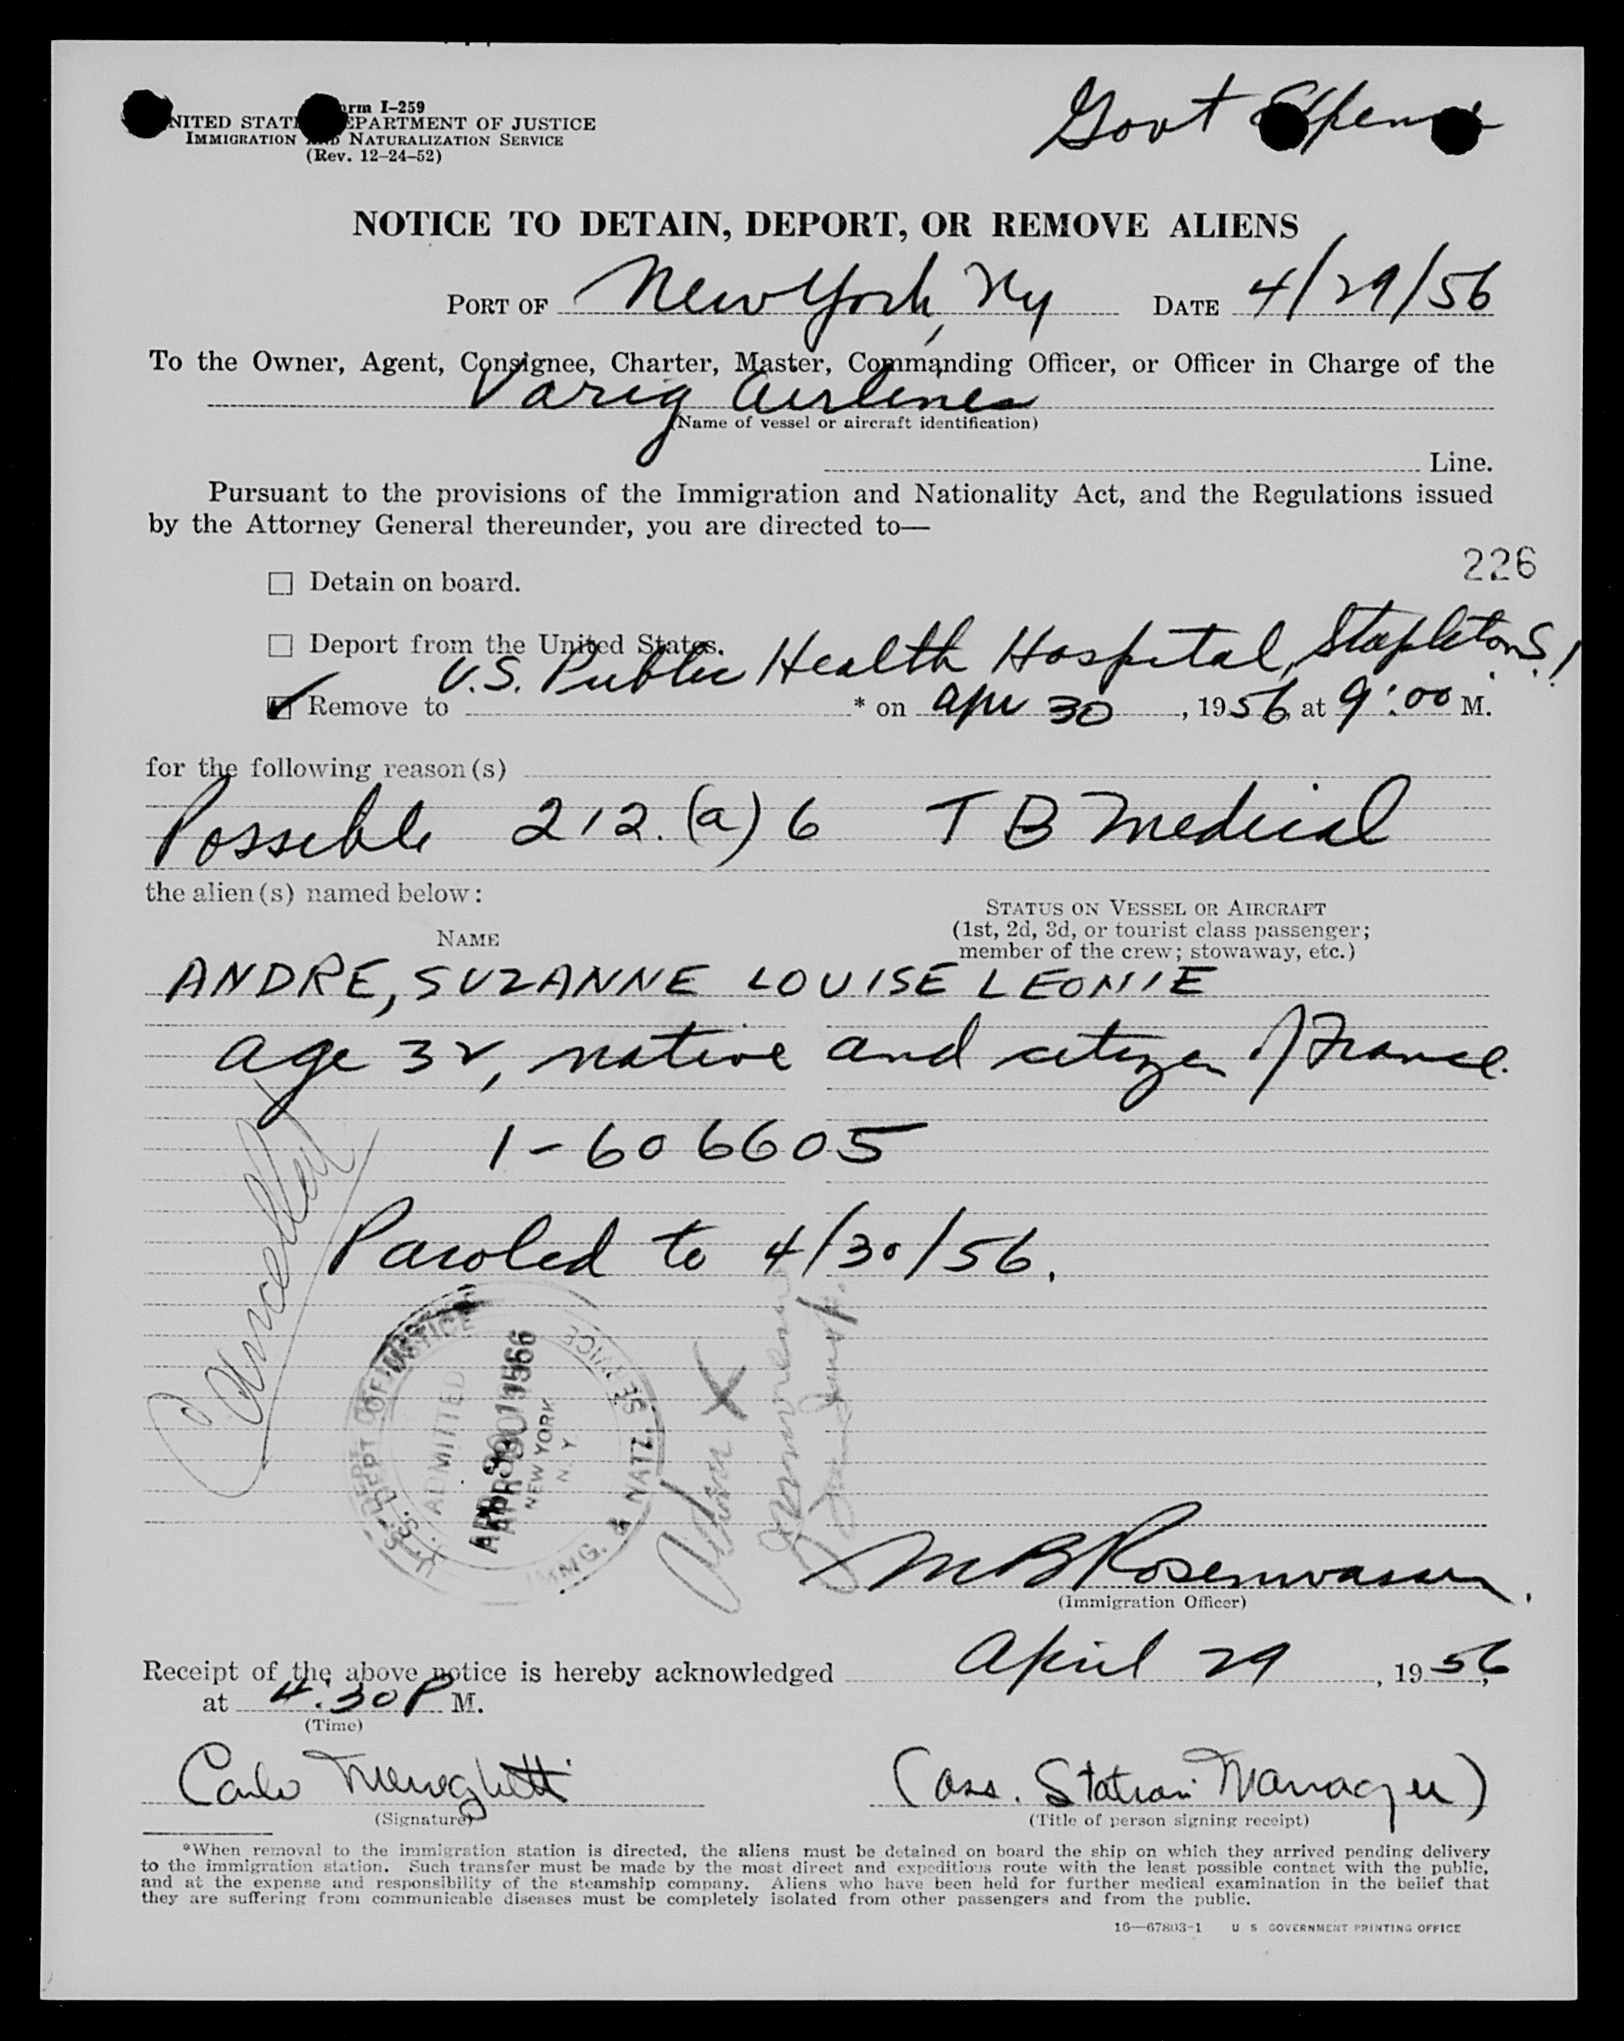 Form I-259
UNITED STATES DEPARTMENT OF JUSTICE
IMMIGRATION AND NATURALIZATION SERVICE
(Rev. 12-24-52)
Govt Expense
NOTICE TO DETAIN, DEPORT, OR REMOVE ALIENS
PORT OF New York, Ny DATE 4/29/56
To the Owner, Agent, Consignee, Charter, Master, Commanding Officer, or Officer in Charge of the
Varig Airlines
(Name of vessel or aircraft identification)
Line.
Pursuant to the provisions of the Immigration and Nationality Act, and the Regulations issued
by the Attorney General thereunder, you are directed to—
226
☐ Detain on board.
☐ Deport from the United States.
U.S. Public Health Hospital, Stapleton S.I.
☑ Remove to * on Apr 30, 1956, at 9:00 M.
for the following reason(s)
Possible 212.(a) 6 TB Medical
the alien(s) named below:
NAME
STATUS ON VESSEL OR AIRCRAFT
(1st, 2d, 3d, or tourist class passenger;
member of the crew; stowaway, etc.)
ANDRE, SUZANNE LOUISE LEONIE
age 32, native and citizen of France.
1-606605
Paroled to 4/30/56.
Cancelled
U.S. DEPT OF JUSTICE
ADMITTED
APR 30 1956
NEW YORK
N.Y.
IMMG. & NATZ. SERVICE
M B Rosenwasser
(Immigration Officer)
Receipt of the above notice is hereby acknowledged April 29, 1956,
at 4:30 P M.
(Time)
Carlo Meneghetti (Ass. Station Manager)
(Signature) (Title of person signing receipt)
*When removal to the immigration station is directed, the aliens must be detained on board the ship on which they arrived pending delivery
to the immigration station. Such transfer must be made by the most direct and expeditious route with the least possible contact with the public,
and at the expense and responsibility of the steamship company. Aliens who have been held for further medical examination in the belief that
they are suffering from communicable diseases must be completely isolated from other passengers and from the public.
16—67803-1 U S GOVERNMENT PRINTING OFFICE